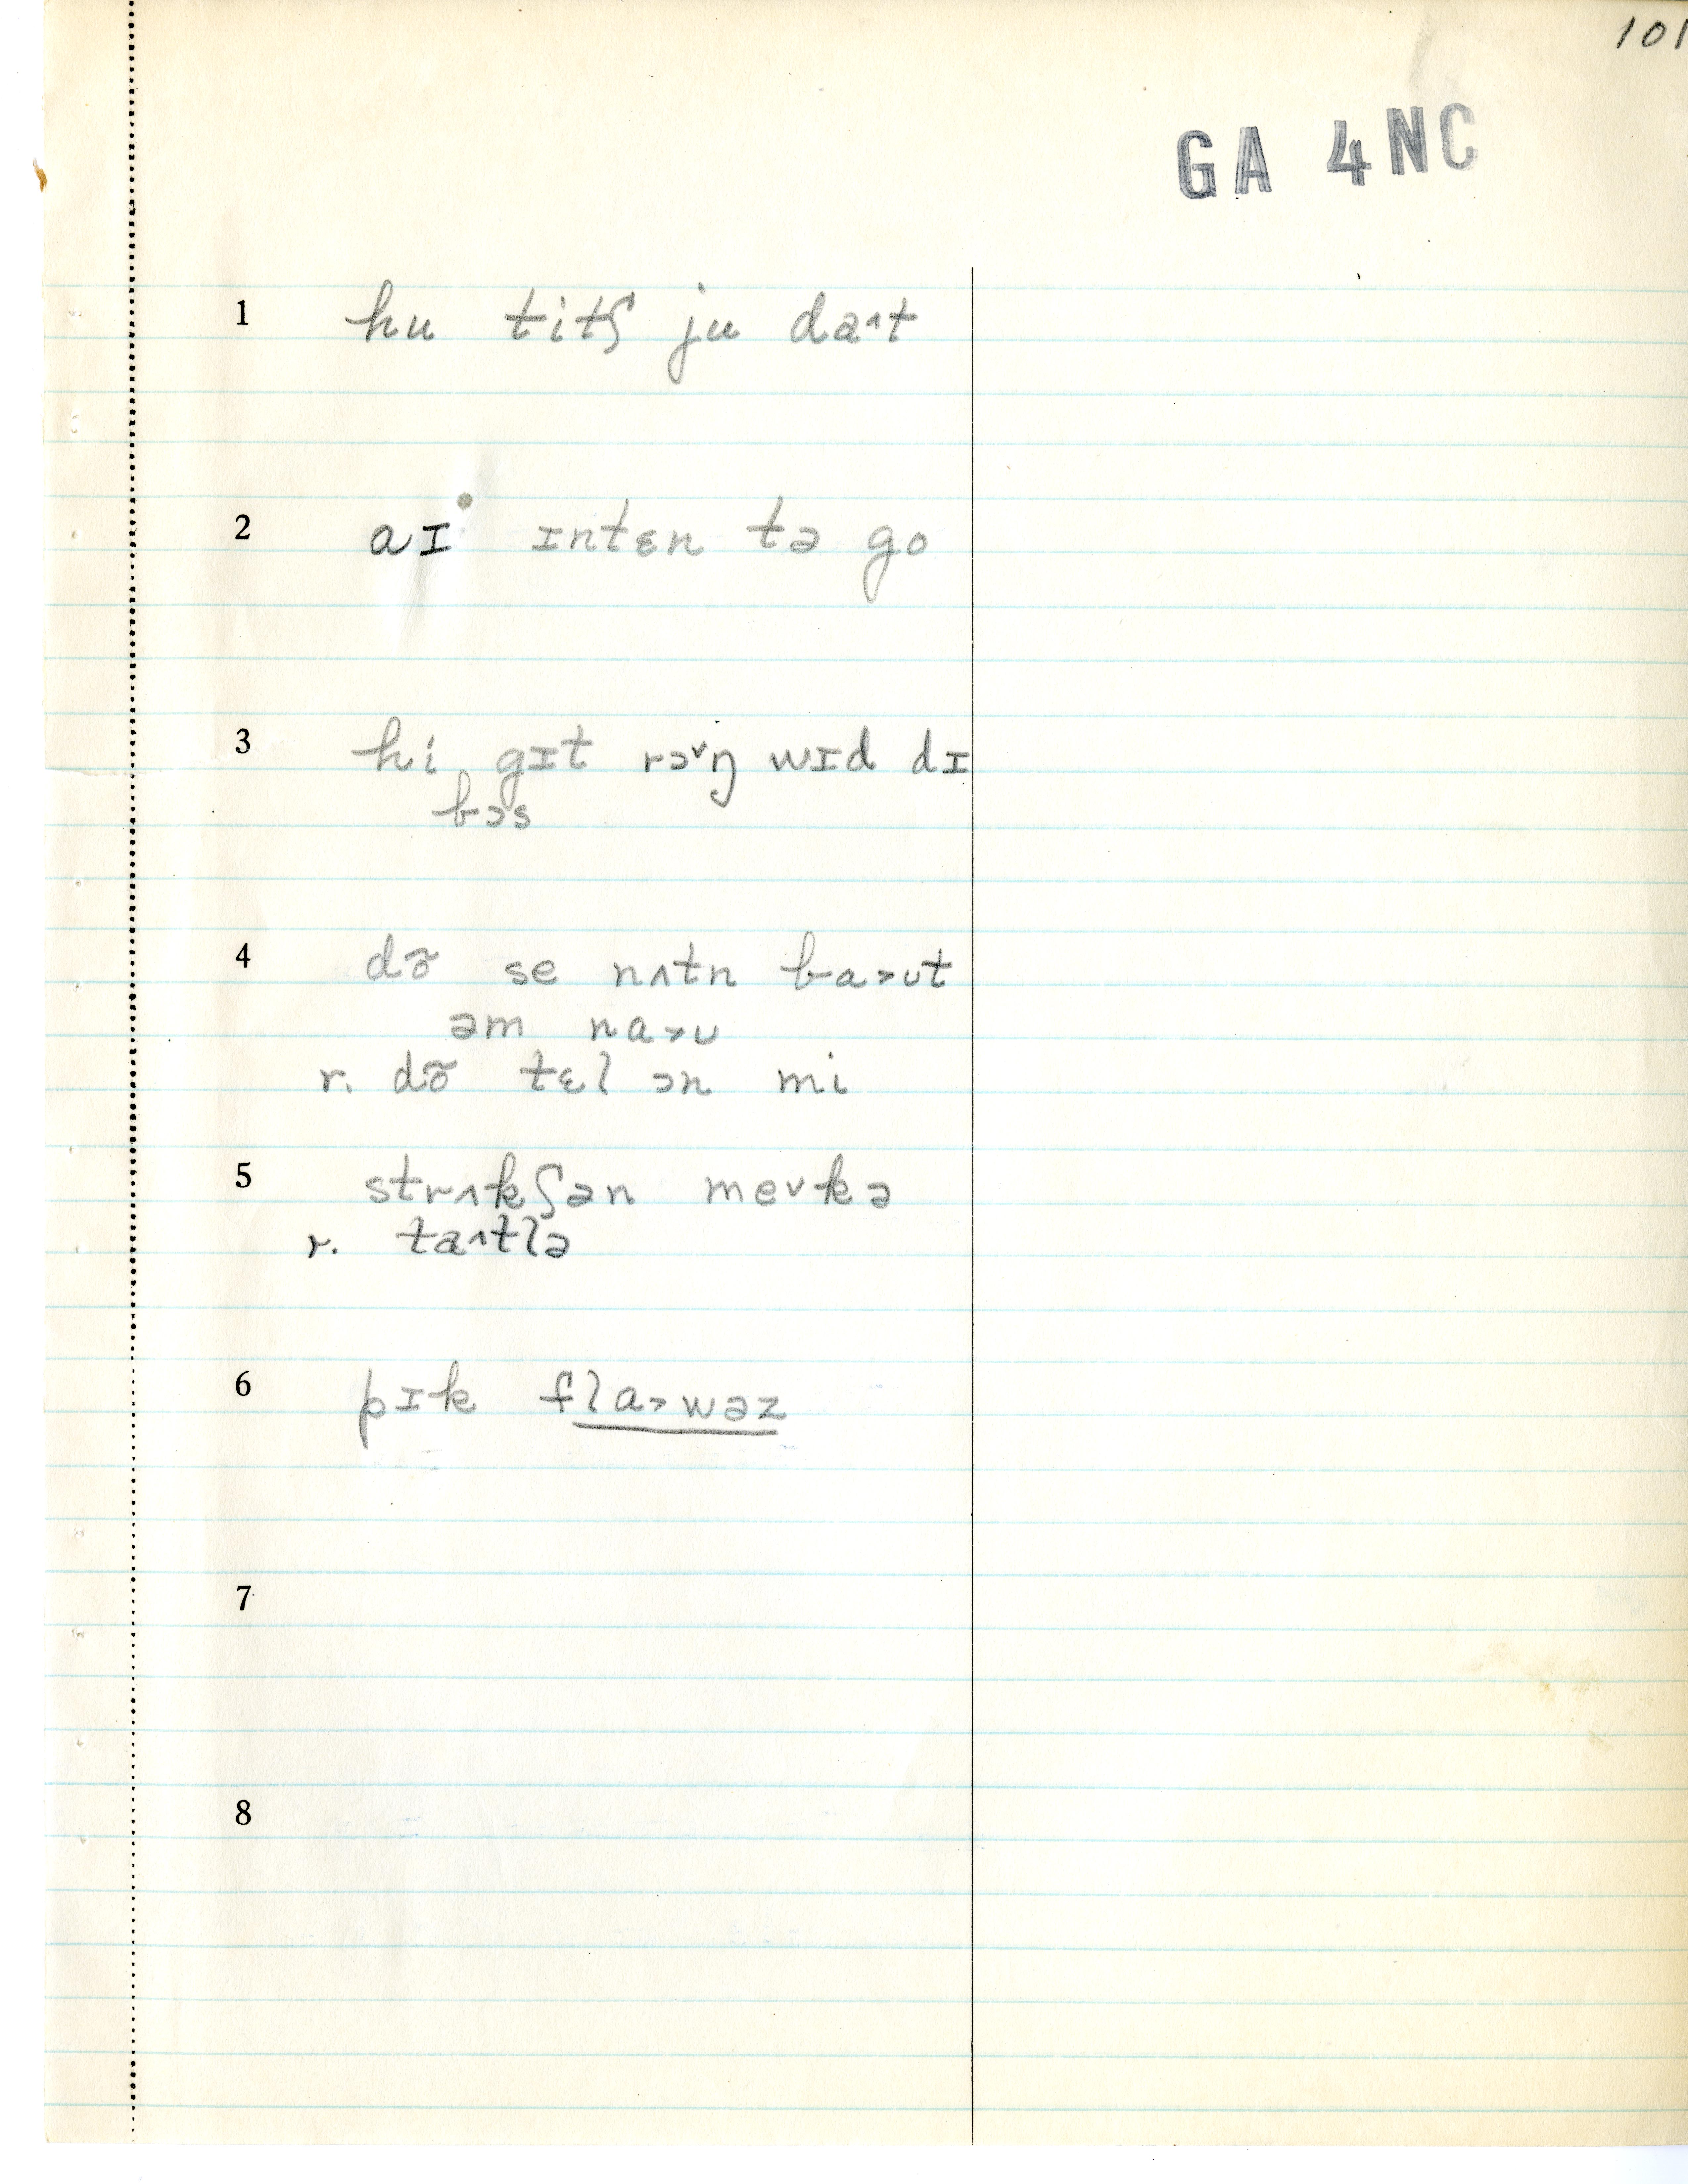 101
GA 4NC
1 hu titʃ ju da˄t
2 aɪ ɪntɛn tə go
3 hi gɪt rɔ˅ŋ wɪd dɪ
bɔs
4 dõ se nʌtn ba˃ʊt
əm na˃ʊ
r. dõ tɛl ɔn mi
5 strʌkʃən me˅kə
r. ta˄tlə
6 pɪk fla˃wəz
7
8